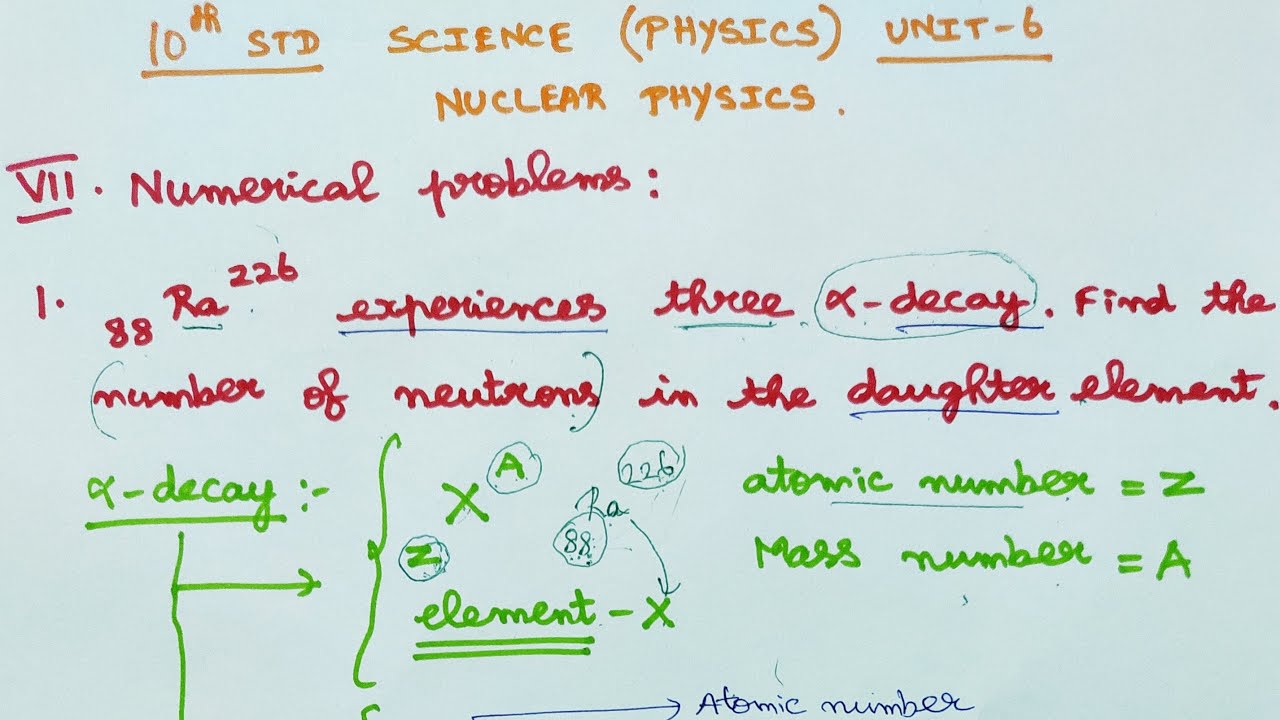 10th STD SCIENCE (PHYSICS) UNIT-6
NUCLEAR PHYSICS.
VII. Numerical problems:
1. 88 Ra 226 experiences three α-decay. Find the
(number of neutrons) in the daughter element.
α-decay :-
X A
Z
226
Ra
88
element - X
atomic number = Z
Mass number = A
Atomic number